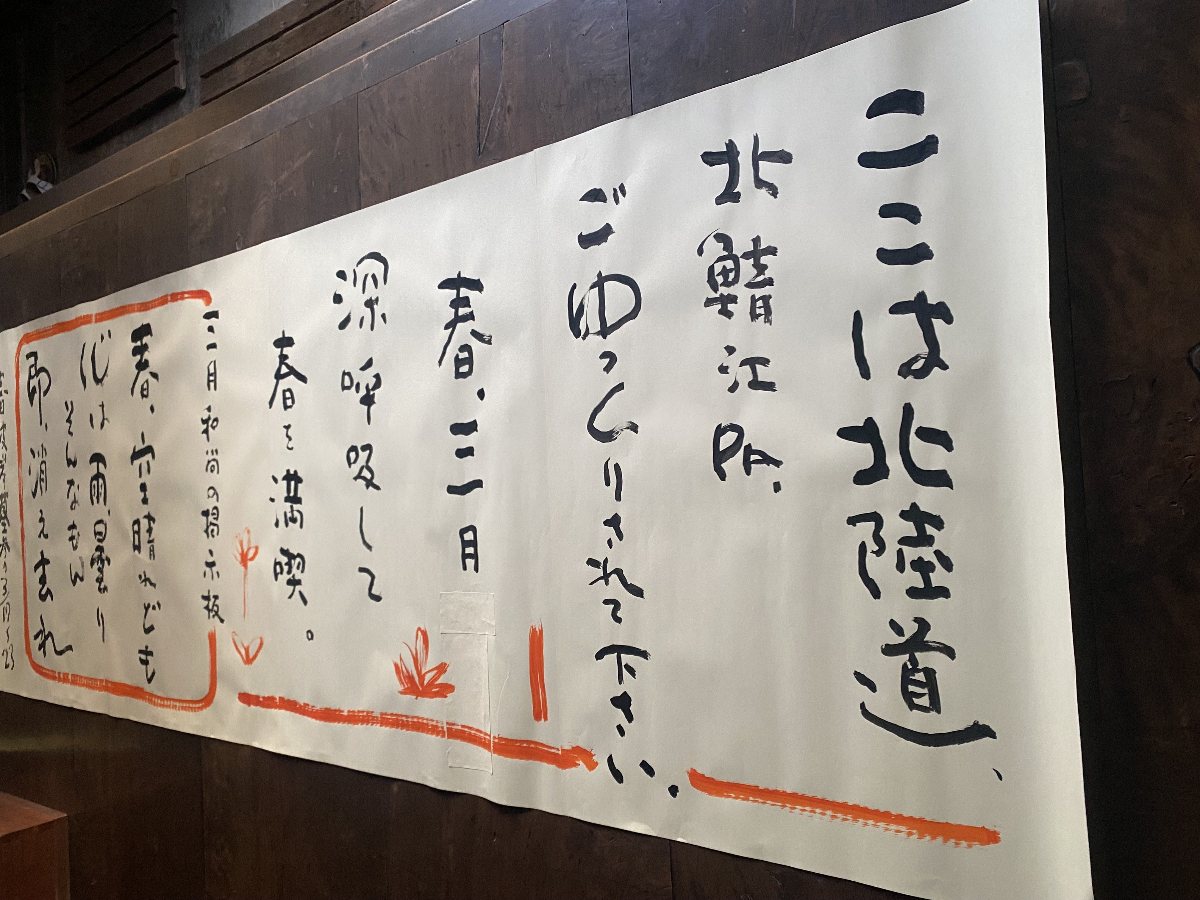 ここは北陸道、
北鯖江PA.
ごゆっくりされて下さい。
春、三月
深呼吸して
春を満喫。
三月和尚の掲示板
春、空晴れども
心は雨、曇り
そんなもん
即、消え去れ